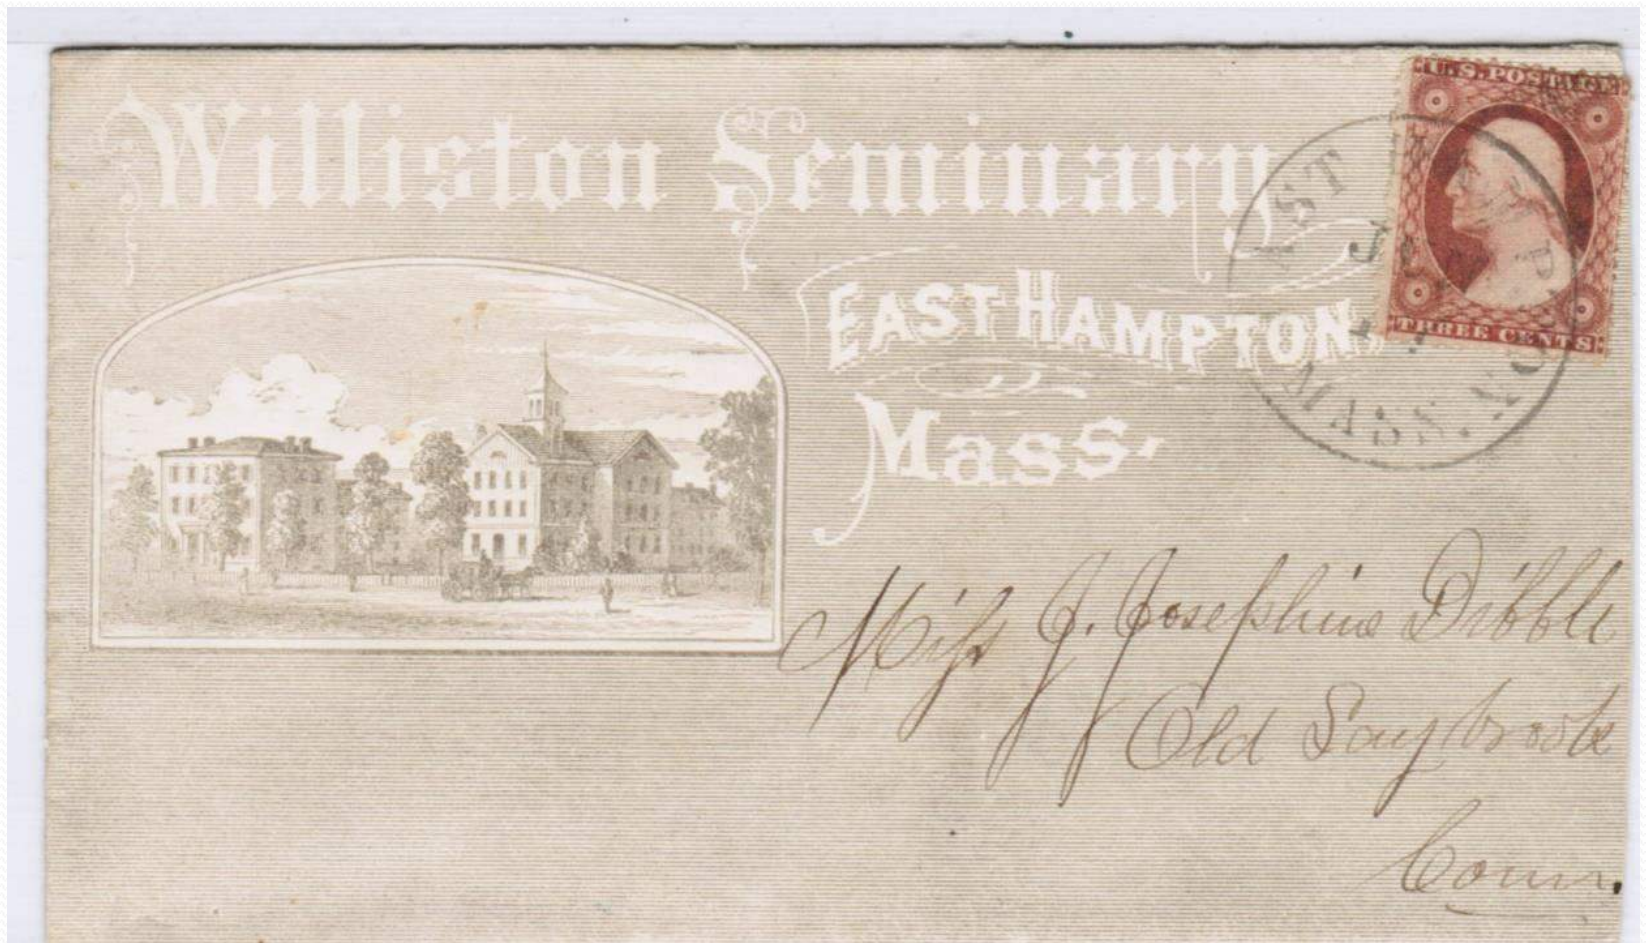 Williston Seminary
EAST HAMPTON,
Mass.
U.S. POSTAGE
THREE CENTS
EAST HAMPTON
MASS.
Miss J. Josephine Dibble
Old Saybrook
Conn.